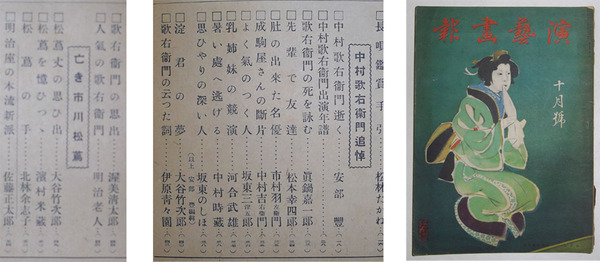 演藝畫報
十月號
□長唄鑑賞手引……松林たかね
中村歌右衞門追悼
□中村歌右衞門逝く……安部豐
□中村歌右衞門出演年譜……
□歌右衞門の死を詠む……眞鍋嘉一郎
□先輩で友達……松本幸四郎
□肚の出來た名優……市村羽左衞門
□成駒屋さんの斷片……中村吉右衞門
□よく氣のつく人……坂東三津五郎
□乳姉妹の競演……河合武雄
□暑い處へ逃げる……中村時蔵
□思ひやりの深い人……坂東のしほ
□淀君の夢……大谷竹次郎
□歌右衞門の云つた詞……伊原青々園
□歌右衞門の思出……渥美清太郎
□人氣の歌右衞門……明治老人
亡き市川松蔦
□松蔦丈の思ひ出……大谷竹次郎
□松蔦を憶ひつゝ……濱村米蔵
□松蔦の手……北林余志子
□明治座の本流新派……佐藤正太郎